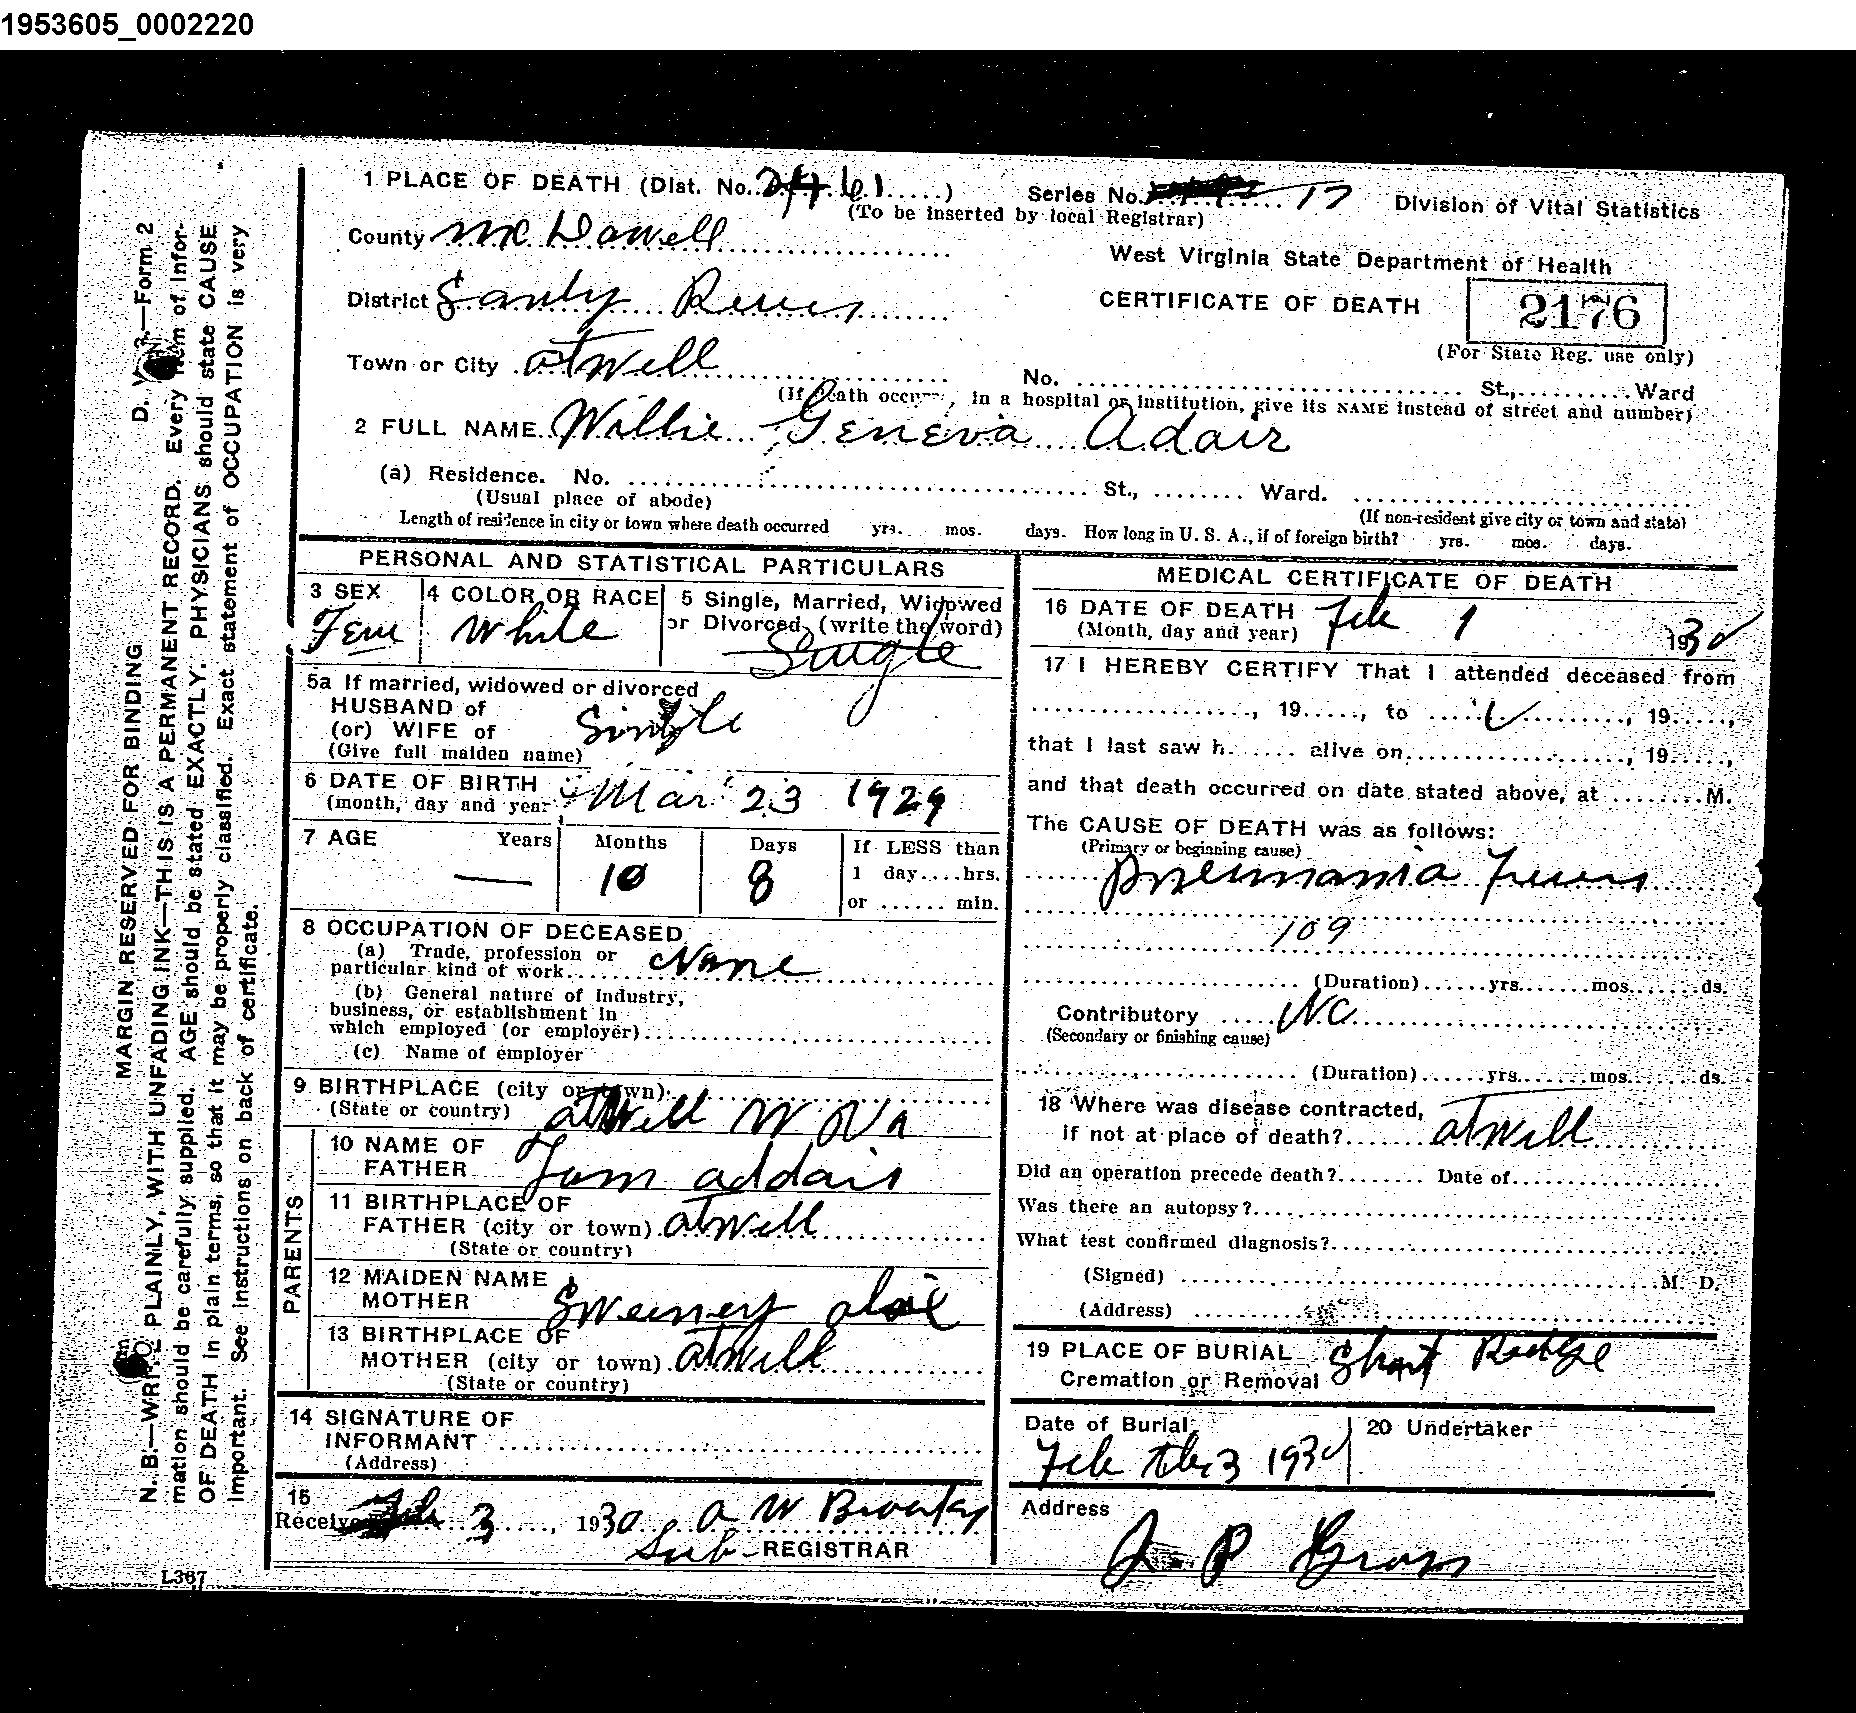 1953605_0002220
1 PLACE OF DEATH (Dist. No. 61 ......) Series No. 17 Division of Vital Statistics
(To be inserted by local Registrar)
County Mc Dowell
West Virginia State Department of Health
District Sandy River
CERTIFICATE OF DEATH 2176
(For State Reg. use only)
Town or City atwell
No. ........ St., ........ Ward
(If death occurs, in a hospital or institution, give its NAME instead of street and number)
2 FULL NAME Willie Geneva Adair
(a) Residence. No. ........ St., ........ Ward. ........
(Usual place of abode) (If non-resident give city or town and state)
Length of residence in city or town where death occurred yrs. mos. days. How long in U. S. A., if of foreign birth? yrs. mos. days.
PERSONAL AND STATISTICAL PARTICULARS
3 SEX
Fem
4 COLOR OR RACE
White
5 Single, Married, Widowed
or Divorced (write the word)
Single
5a If married, widowed or divorced
HUSBAND of
(or) WIFE of Single
(Give full maiden name)
6 DATE OF BIRTH
(month, day and year) Mar 23 1929
7 AGE Years Months Days If LESS than
— 10 8 1 day....hrs.
or ...... min.
8 OCCUPATION OF DECEASED
(a) Trade, profession or
particular kind of work None
(b) General nature of Industry,
business, or establishment in
which employed (or employer)
(c) Name of employer
9 BIRTHPLACE (city or town)
(State or country) atwell W Va
PARENTS
10 NAME OF
FATHER Tom addair
11 BIRTHPLACE OF
FATHER (city or town) atwell
(State or country)
12 MAIDEN NAME
MOTHER
13 BIRTHPLACE OF
MOTHER (city or town) atwell
(State or country)
14 SIGNATURE OF
INFORMANT
(Address)
15
Received Feb 3, 1930 a W
Sub-REGISTRAR
MEDICAL CERTIFICATE OF DEATH
16 DATE OF DEATH Feb 1 1930
(Month, day and year)
17 I HEREBY CERTIFY That I attended deceased from
........, 19....., to ........, 19.....,
that I last saw h...... alive on........, 19.....,
and that death occurred on date stated above, at ........M.
The CAUSE OF DEATH was as follows:
(Primary or beginning cause)
Pneumonia Fever
109
(Duration)......yrs.......mos.......ds.
Contributory
(Secondary or finishing cause)
(Duration)......yrs.......mos.......ds.
18 Where was disease contracted,
if not at place of death? atwell
Did an operation precede death?........ Date of........
Was there an autopsy?........
What test confirmed diagnosis?........
(Signed) ........M. D.
(Address) ........
19 PLACE OF BURIAL
Cremation or Removal Short
Date of Burial 20 Undertaker
Feb the 3 1930
Address
J. P Gross
MARGIN RESERVED FOR BINDING D. V. S.—Form 2
N. B.—WRITE PLAINLY, WITH UNFADING INK—THIS IS A PERMANENT RECORD. Every item of Infor-
mation should be carefully supplied. AGE should be stated EXACTLY. PHYSICIANS should state CAUSE
OF DEATH in plain terms, so that it may be properly classified. Exact statement of OCCUPATION is very
important. See instructions on back of certificate.
L367